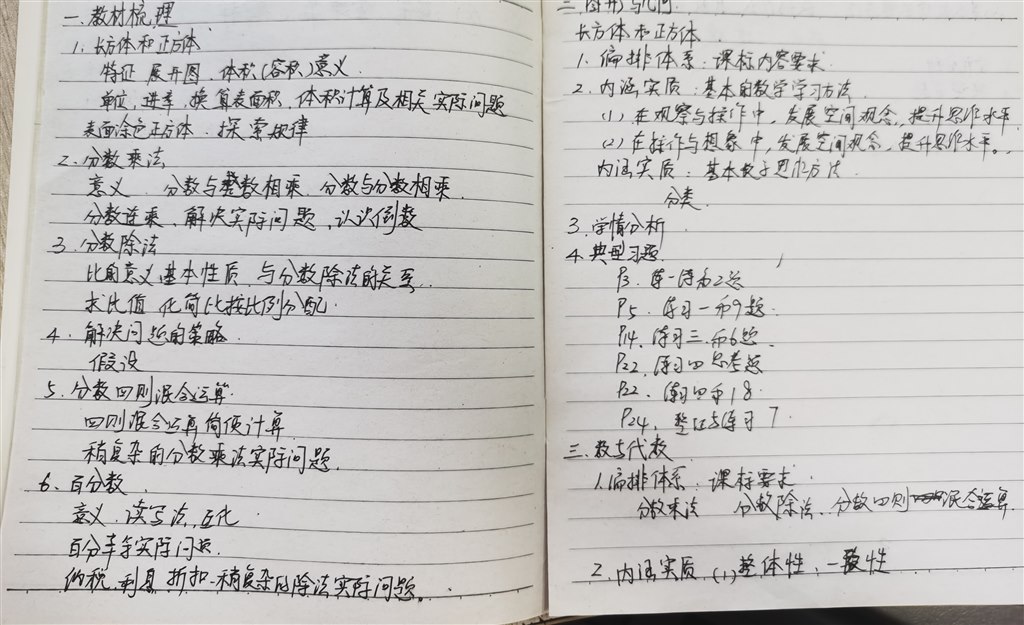 一、教材梳理
1. 长方体和正方体
特征 展开图、体积(容积)意义
单位,进率,换算表面积、体积计算及相关实际问题
表面涂色正方体、探索规律
2、分数乘法
意义 分数与整数相乘、分数与分数相乘
分数连乘、解决实际问题、认识倒数
3、分数除法
比的意义基本性质、与分数除法的关系
求比值 化简比按比例分配
4、解决问题的策略
假设
5、分数四则混合运算
四则混合运算简便计算
稍复杂的分数乘法实际问题
6、百分数
意义、读写法,互化
百分率等实际问题
纳税、利息、折扣、稍复杂的除法实际问题。
二、图形与几何
长方体和正方体
1、编排体系:课标内容要求
2、内涵实质:基本的数学学习方法
(1)在观察与操作中,发展空间观念,提升思维水平
(2)在操作与想象中,发展空间观念,提升思维水平。
内涵实质:基本数学思维方法
分类
3、学情分析
4、典型习题
P3、练一练第2题
P5、练习一第9题
P14、练习三、第6题
P22、练习四思考题
P22、练习四第18
P24、整理与练习7
三、数与代数
1、编排体系:课标要求
分数乘法 分数除法、分数四则混合运算
2、内涵实质、(1)整体性,一致性